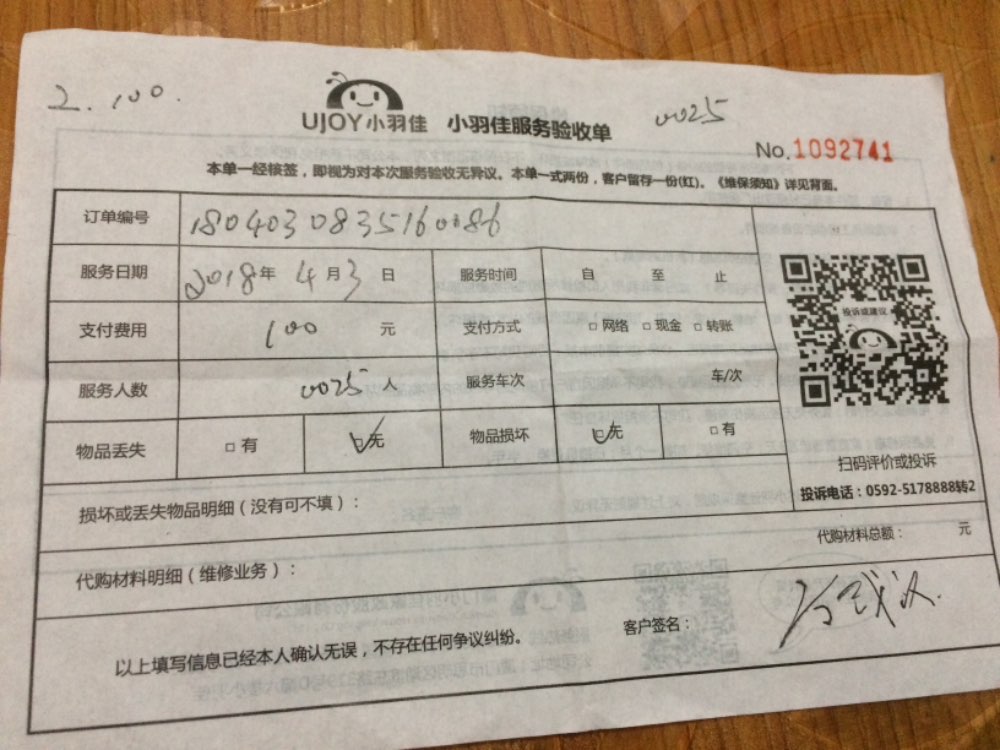 2.100.
0025
UJOY小羽佳 小羽佳服务验收单
No.1092741
本单一经核签，即视为对本次服务验收无异议。本单一式两份，客户留存一份(红)。《维保须知》详见背面。
订单编号 1804030835160086
服务日期 2018年 4月3日 服务时间 自 至 止
投诉或建议
支付费用 100 元 支付方式 □网络 □现金 □转账
服务人数 0025人 服务车次 车/次
物品丢失 □有 ☑无 物品损坏 ☑无 □有
扫码评价或投诉
投诉电话：0592-5178888转2
损坏或丢失物品明细（没有可不填）：
代购材料总额： 元
代购材料明细（维修业务）：
客户签名：
以上填写信息已经本人确认无误，不存在任何争议纠纷。